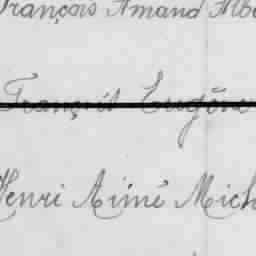 François Amand Albe
François Eugène
Henri Aimé Mich